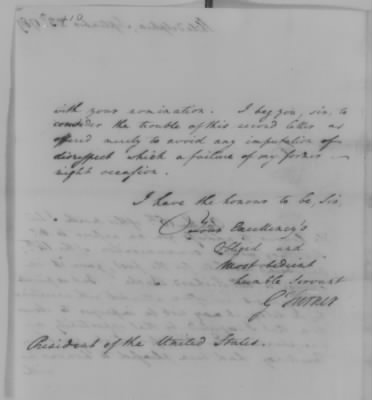 with your nomination. I beg you, sir, to
consider the trouble of this second letter as
offered merely to avoid any imputation of
disrespect which a failure of my former
might occasion.
I have the honour to be, Sir
Your Excellency's
Obliged and
most obedient
humble Servant
President of the United States.